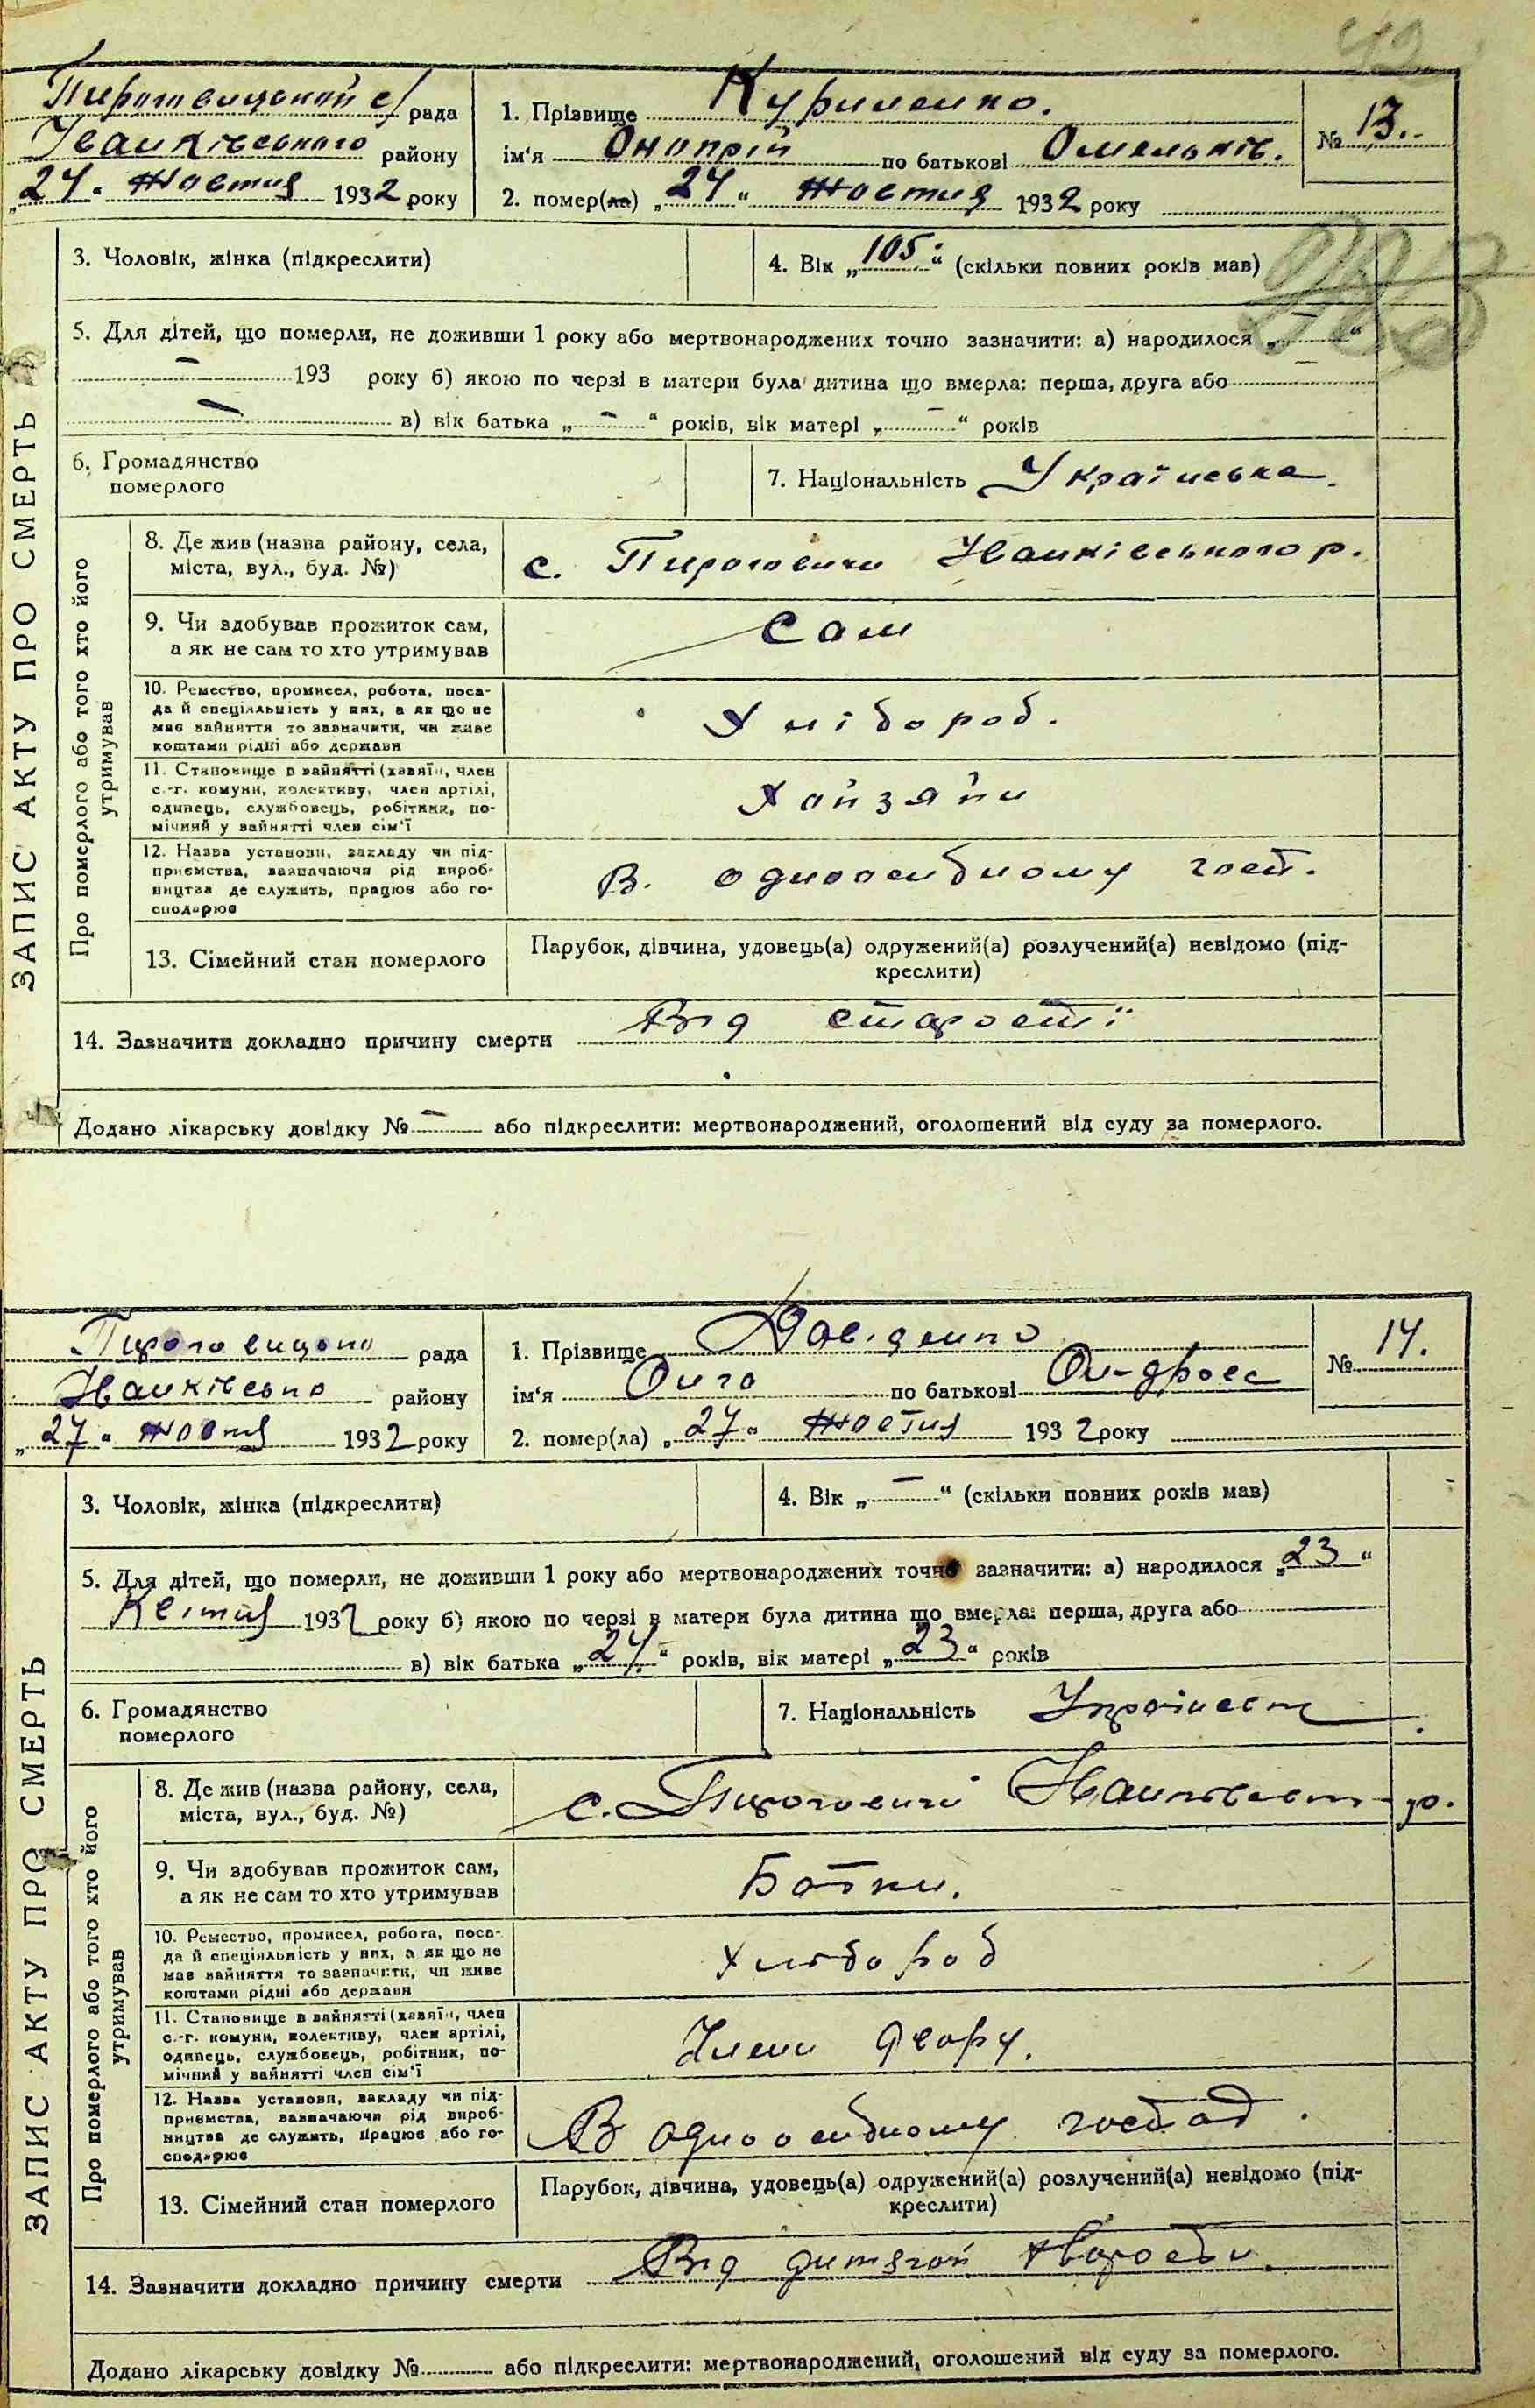 42
Пироговицькой с/ рада
Іванківського району
„24“ Жовтня 1932 року
1. Прізвище Куриленко.
ім'я Онопрій по батькові Омельків.
№ 13.
2. помер(ла) „24“ жовтня 1932 року
3. Чоловік, жінка (підкреслити)
4. Вік „105“ (скільки повних років мав)
5. Для дітей, що померли, не доживши 1 року або мертвонароджених точно зазначити: а) народилося „—“
— 193 року б) якою по черзі в матери була дитина що вмерла: перша, друга або
— в) вік батька „—“ років, вік матері „—“ років
6. Громадянство
померлого
7. Національність Українська.
ЗАПИС АКТУ ПРО СМЕРТЬ
Про померлого або того хто його
утримував
8. Де жив (назва району, села,
міста, вул., буд. №)
с. Пироговичи Іванківського р.
9. Чи здобував прожиток сам,
а як не сам то хто утримував
Сам
10. Ремество, промисел, робота, поса-
да й спеціяльність у них, а як що не
має зайняття то зазначити, чи живе
коштами рідні або держави
Хлібороб.
11. Становище в зайнятті (хазяїн, член
с.-г. комуни, колективу, член артілі,
одинець, службовець, робітник, по-
мічний у зайнятті член сім'ї
Хайзяїн
12. Назва установи, закладу чи під-
приємства, зазначаючи рід вироб-
ництва де служить, працює або го-
сподарює
В. одноосибному госп.
13. Сімейний стан померлого
Парубок, дівчина, удовець(а) одружений(а) розлучений(а) невідомо (під-
креслити)
14. Зазначити докладно причину смерти Від старости
Додано лікарську довідку №— або підкреслити: мертвонароджений, оголошений від суду за померлого.
Пироговицько рада
Іванківсько району
„27“ жовтня 1932 року
1. Прізвище Давіденко
ім'я Ольга по батькові Ондрове
№ 14.
2. помер(ла) „27“ жовтня 1932 року
3. Чоловік, жінка (підкреслити)
4. Вік „—“ (скільки повних років мав)
5. Для дітей, що померли, не доживши 1 року або мертвонароджених точно зазначити: а) народилося „23“
Квітня 1932 року б) якою по черзі в матери була дитина що вмерла: перша, друга або
в) вік батька „24“ років, вік матері „23“ років
6. Громадянство
померлого
7. Національність
ЗАПИС АКТУ ПРО СМЕРТЬ
Про померлого або того хто його
утримував
8. Де жив (назва району, села,
міста, вул., буд. №)
с. Пироговичі Іванківськ р.
9. Чи здобував прожиток сам,
а як не сам то хто утримував
Батьки.
10. Ремество, промисел, робота, поса-
да й спеціяльність у них, а як що не
має зайняття то зазначити, чи живе
коштами рідні або держави
Хлібороб
11. Становище в зайнятті (хазяїн, член
с.-г. комуни, колективу, член артілі,
одинець, службовець, робітник, по-
мічний у зайнятті член сім'ї
Член двору.
12. Назва установи, закладу чи під-
приємства, зазначаючи рід вироб-
ництва де служить, працює або го-
сподарює
В одноосибному господ.
13. Сімейний стан померлого
Парубок, дівчина, удовець(а) одружений(а) розлучений(а) невідомо (під-
креслити)
14. Зазначити докладно причину смерти Від дитячой хвороби.
Додано лікарську довідку № або підкреслити: мертвонароджений, оголошений від суду за померлого.